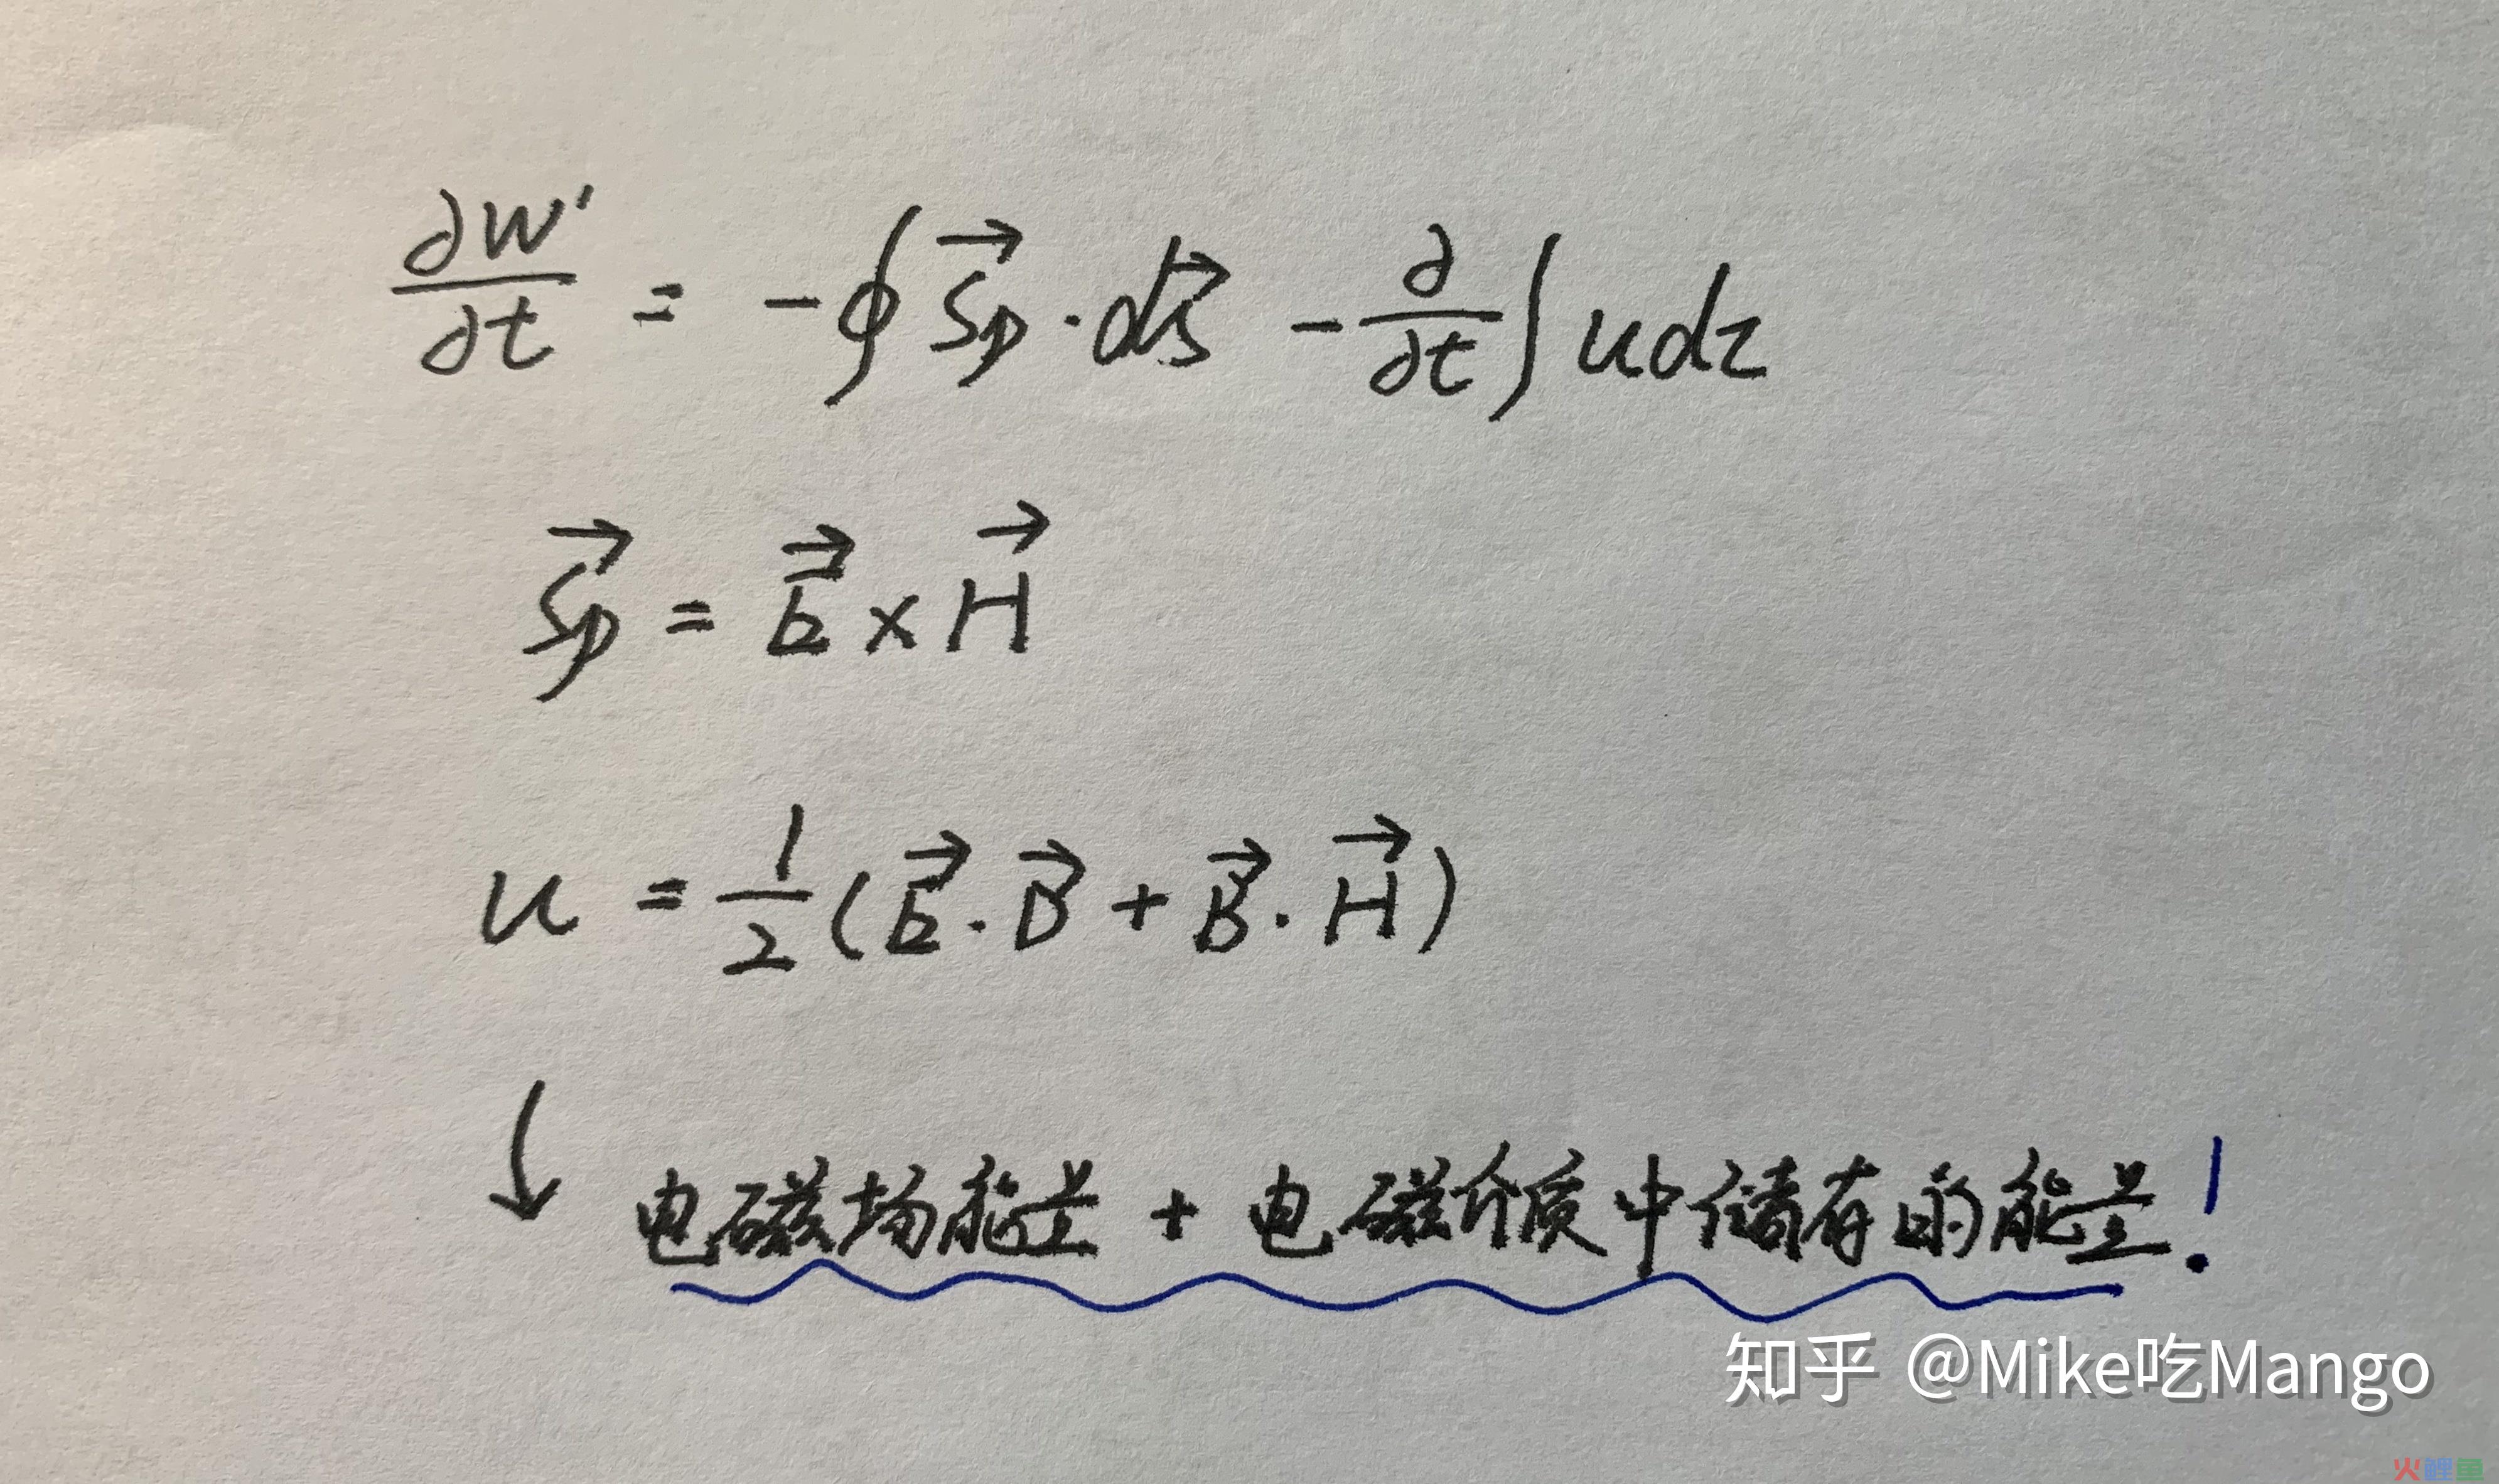 ∂W'/∂t = -∮S⃗p·ds⃗ - ∂/∂t∫udτ
S⃗p = E⃗×H⃗
u = 1/2(E⃗·D⃗+B⃗·H⃗)
↓ 电磁场能量 + 电磁介质中储存的能量!
知乎 @Mike吃Mango
火鲤鱼